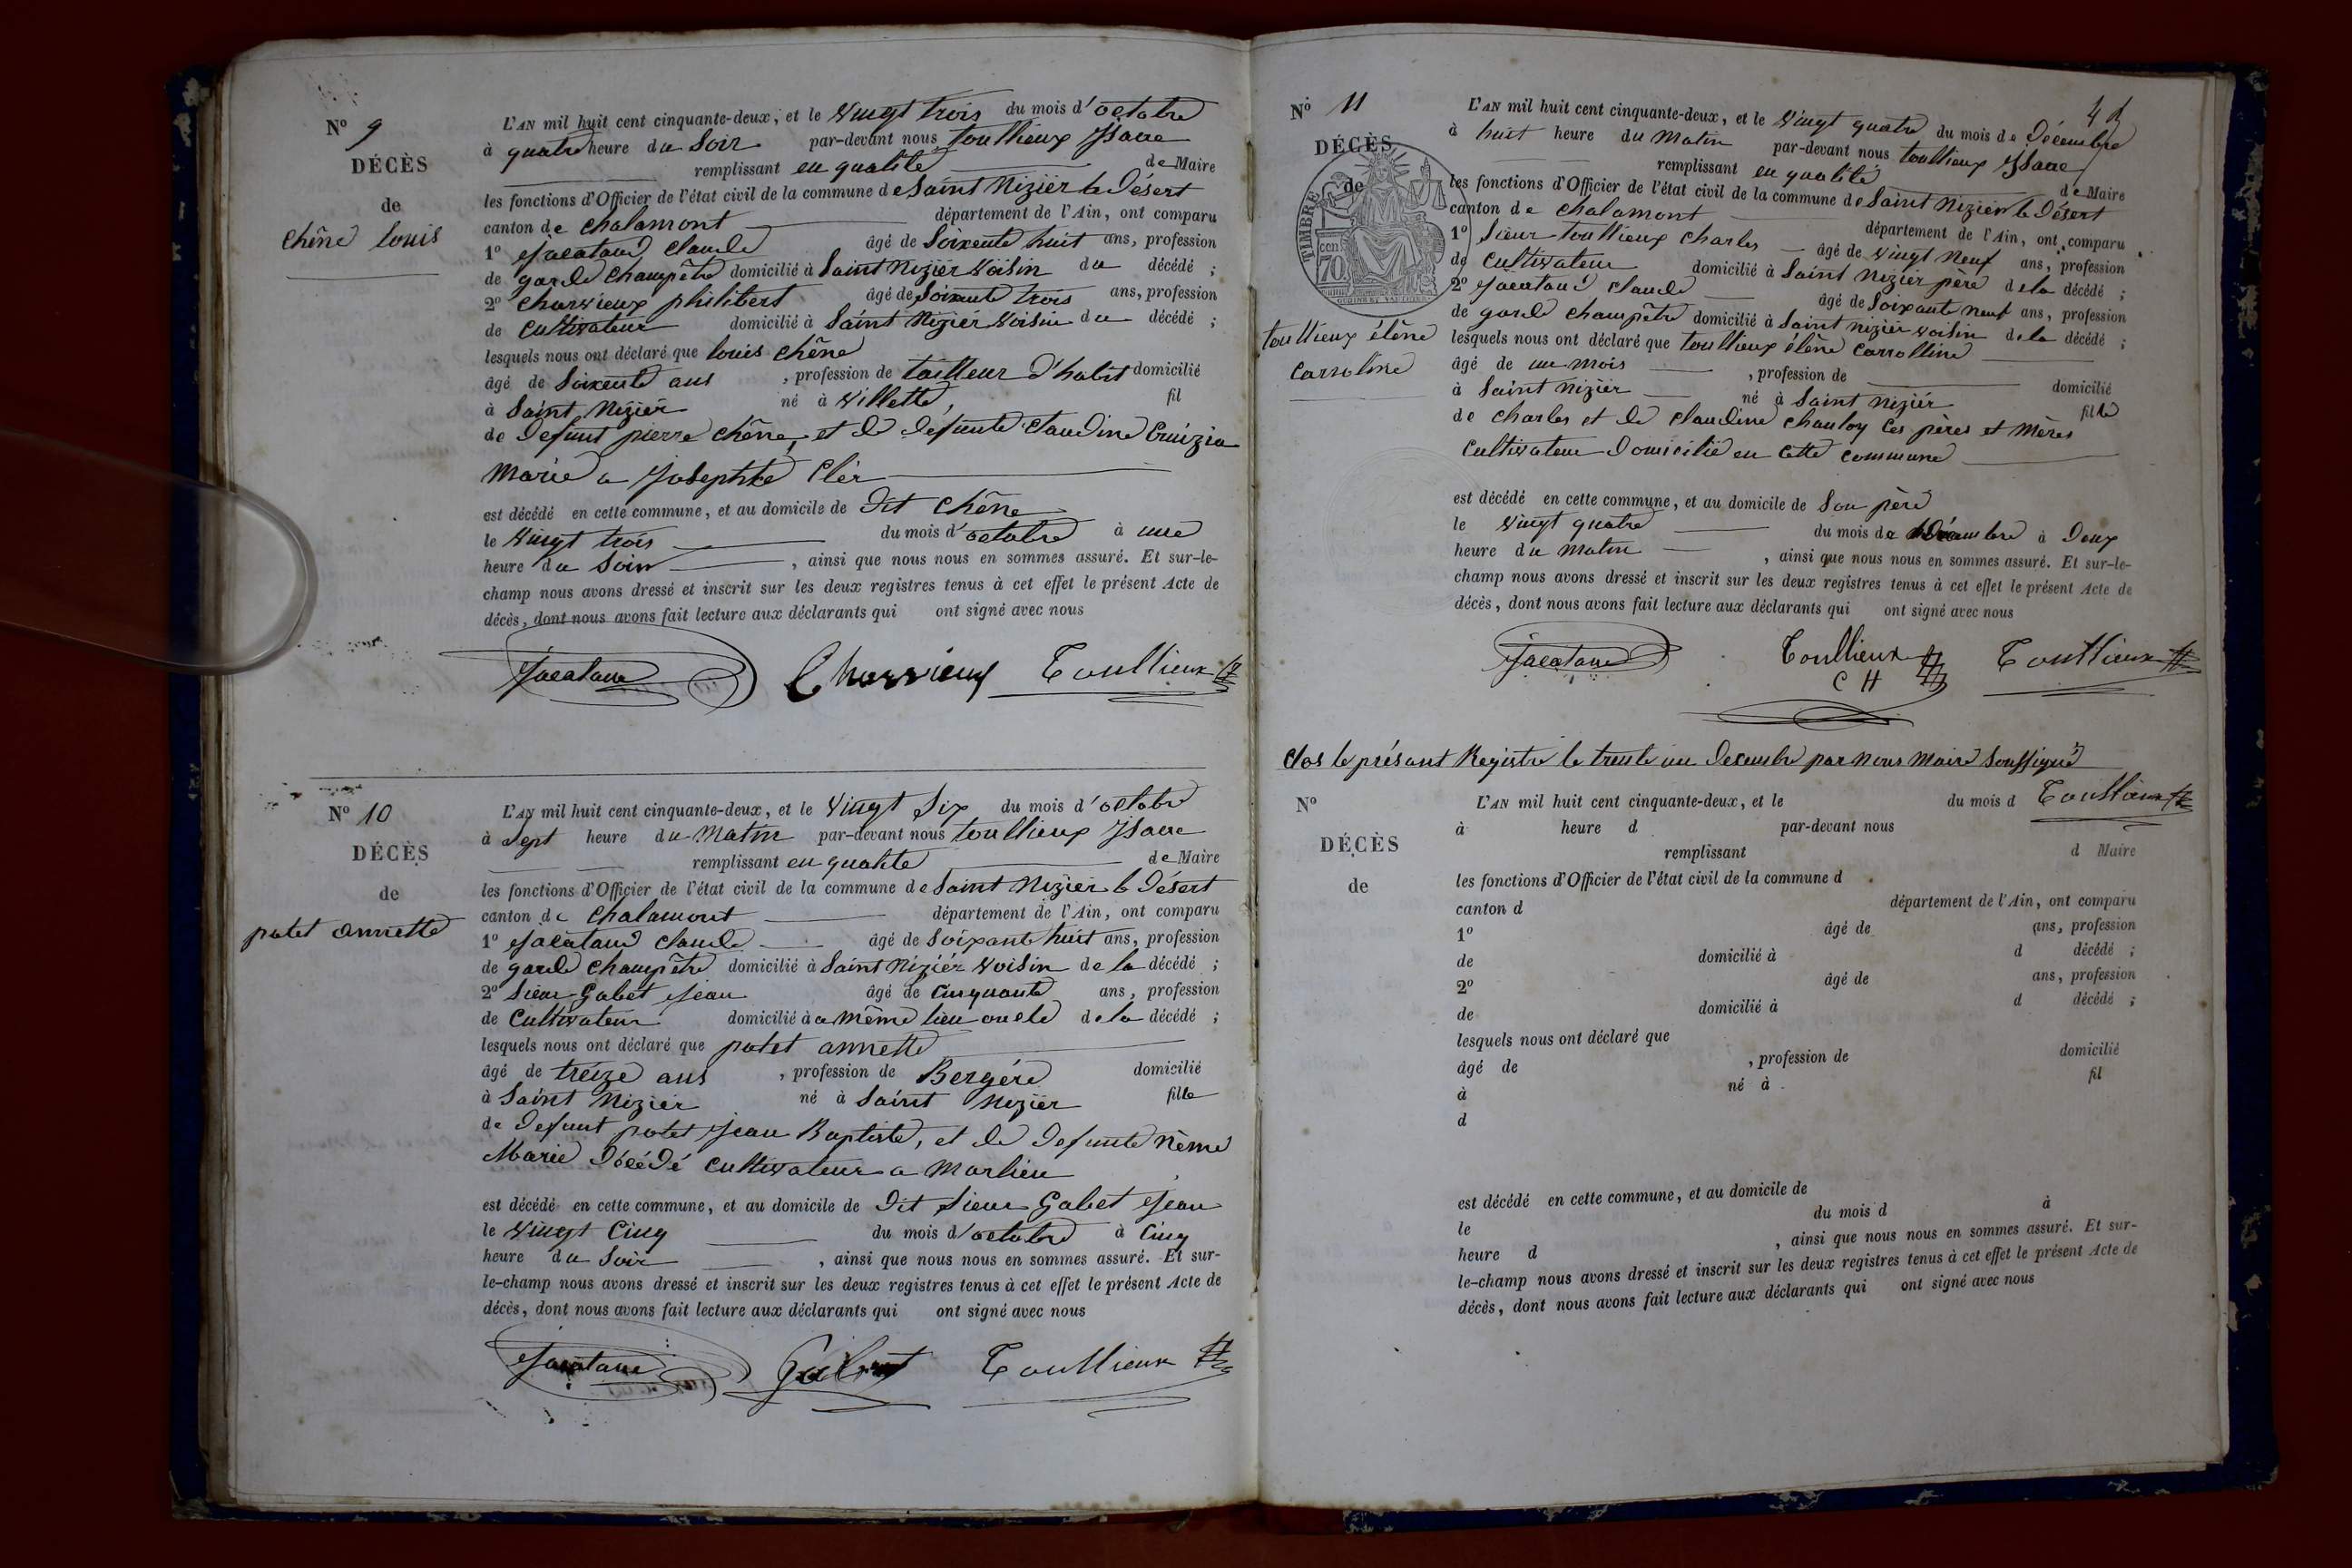 N° 9
DÉCÈS
de
Chêne louis
L'AN mil huit cent cinquante-deux, et le vingt trois du mois d'octobre
à quatre heure du Soir par-devant nous toullieux Isaac
remplissant en qualité de Maire
les fonctions d'Officier de l'état civil de la commune de Saint Nizier le Désert
canton de Chalamont département de l'Ain, ont comparu
1° Jacataud Claude âgé de Soixente huit ans, profession
de garde Champêtre domicilié à Saint Nizier voisin du décédé ;
2° Charvieux philibert âgé de Soixante trois ans, profession
de Cultivateur domicilié à Saint Nizier voisin du décédé ;
lesquels nous ont déclaré que louis Chêne
âgé de Soixente ans , profession de tailleur d'habit domicilié
à Saint Nizier né à Villette, fil
de Defunt pierre Chêne, et de défunte Claudine Cruizia
Marié a Josephte Clér
est décédé en cette commune, et au domicile de Dit Chêne
le vingt trois du mois d'octobre à une
heure du Soir , ainsi que nous nous en sommes assuré. Et sur-le-
champ nous avons dressé et inscrit sur les deux registres tenus à cet effet le présent Acte de
décès, dont nous avons fait lecture aux déclarants qui ont signé avec nous
Jacataud Charvieux Toullieux
N° 10
DÉCÈS
de
patet annette
L'AN mil huit cent cinquante-deux, et le vingt Six du mois d'octobre
à Sept heure du Matin par-devant nous toullieux Isaac
remplissant en qualité de Maire
les fonctions d'Officier de l'état civil de la commune de Saint Nizier le Désert
canton de Chalamont département de l'Ain, ont comparu
1° Jacataud Claude âgé de Soixante huit ans, profession
de garde Champêtre domicilié à Saint Nizier voisin de la décédé ;
2° Sieur Gabet Jean âgé de Cinquante ans, profession
de Cultivateur domicilié à a même lieu de la décédé ;
lesquels nous ont déclaré que patet annette
âgé de treize ans , profession de Bergére domicilié
à Saint Nizier né à Saint Nizier fille
de Defunt patet Jean Baptiste, et de Defunte Nême
Marie Décédé Cultivateur a Marlieu
est décédé en cette commune, et au domicile de Dit Sieur Gabet Jean
le vingt Cinq du mois d'octobre à Cinq
heure du Soir , ainsi que nous nous en sommes assuré. Et sur-
le-champ nous avons dressé et inscrit sur les deux registres tenus à cet effet le présent Acte de
décès, dont nous avons fait lecture aux déclarants qui ont signé avec nous
Jacataud Gabet Toullieux
N° 11
DÉCÈS
de
TIMBRE
70
toullieux élêne
Carroline
L'AN mil huit cent cinquante-deux, et le vingt quatre du mois de Décembre
à huit heure du Matin par-devant nous toullieux Isaac
remplissant en qualité de Maire
les fonctions d'Officier de l'état civil de la commune de Saint Nizier le Désert
canton de Chalamont département de l'Ain, ont comparu
1° Sieur toullieux Charles âgé de vingt Neuf ans, profession
de Cultivateur domicilié à Saint Nizier père de la décédé ;
2° Jacataud Claude âgé de Soixante neuf ans, profession
de garde Champêtre domicilié à Saint Nizier voisin de la décédé ;
lesquels nous ont déclaré que toullieux élêne Carrolline
âgé de un mois , profession de domicilié
à Saint Nizier né à Saint Nizier fille
de Charles et de Claudine Chanloy Ces pères et Mères
Cultivateur Domicilié en Cette Commune
est décédé en cette commune, et au domicile de Son père
le vingt quatre du mois de Décembre à Deux
heure du Matin , ainsi que nous nous en sommes assuré. Et sur-le-
champ nous avons dressé et inscrit sur les deux registres tenus à cet effet le présent Acte de
décès, dont nous avons fait lecture aux déclarants qui ont signé avec nous
Jacataud Toullieux CH Toullieux
Clos le présant Registre le trente un Decembre par nous Maire Soussigné
Toullieux
N°
DÉCÈS
de
L'AN mil huit cent cinquante-deux, et le du mois d
à heure d par-devant nous
remplissant d Maire
les fonctions d'Officier de l'état civil de la commune d
canton d département de l'Ain, ont comparu
1° âgé de ans, profession
de domicilié à d décédé ;
2° âgé de ans, profession
de domicilié à d décédé ;
lesquels nous ont déclaré que
âgé de , profession de domicilié
à né à fil
d
est décédé en cette commune, et au domicile de
le du mois d à
heure d , ainsi que nous nous en sommes assuré. Et sur-
le-champ nous avons dressé et inscrit sur les deux registres tenus à cet effet le présent Acte de
décès, dont nous avons fait lecture aux déclarants qui ont signé avec nous